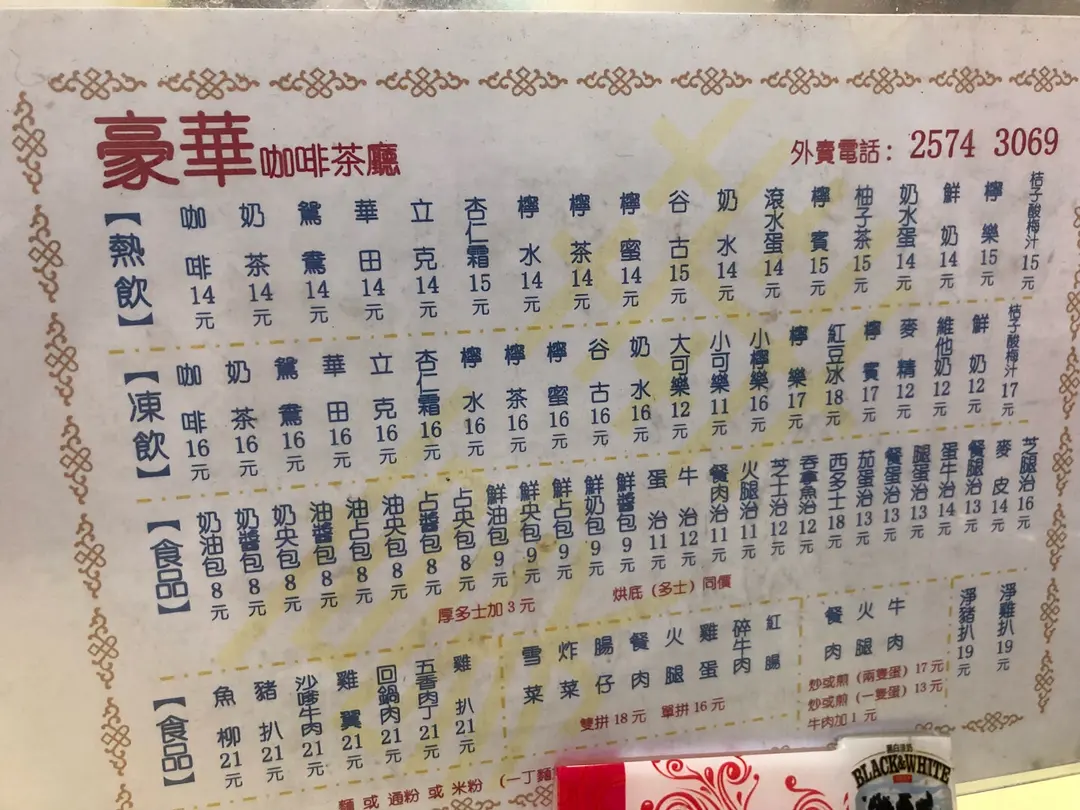 豪華咖啡茶廳
外賣電話：2574 3069
【熱飲】
咖啡14元
奶茶14元
鴛鴦14元
華田14元
立克14元
杏仁霜15元
檸水14元
檸茶14元
檸蜜14元
谷古15元
奶水14元
滾水蛋14元
檸賓15元
柚子茶15元
奶水蛋14元
鮮奶14元
檸樂15元
桔子酸梅汁15元
【凍飲】
咖啡16元
奶茶16元
鴛鴦16元
華田16元
立克16元
杏仁霜16元
檸水16元
檸茶16元
檸蜜16元
谷古16元
奶水16元
大可樂12元
小可樂11元
小檸樂16元
檸樂17元
紅豆冰18元
檸賓17元
麥精12元
維他奶12元
鮮奶12元
桔子酸梅汁17元
【食品】
奶油包8元
奶醬包8元
奶央包8元
油醬包8元
油占包8元
油央包8元
占醬包8元
占央包8元
鮮油包9元
鮮央包9元
鮮占包9元
鮮奶包9元
鮮醬包9元
蛋治11元
牛治12元
餐肉治11元
火腿治11元
芝士治12元
吞拿魚治12元
西多士18元
茄蛋治13元
餐蛋治13元
腿蛋治13元
蛋牛治14元
餐腿治13元
麥皮14元
芝腿治16元
厚多士加3元
烘底（多士）同價
【食品】
魚柳21元
豬扒21元
沙嗲牛肉21元
雞翼21元
回鍋肉21元
五香肉丁21元
雞扒21元
雪菜
炸菜
腸仔
餐肉
火腿
雞蛋
碎牛肉
紅腸
雙拼18元 單拼16元
餐肉
火腿
牛肉
炒或煎（兩隻蛋）17元
炒或煎（一隻蛋）13元
牛肉加1元
淨豬扒19元
淨雞扒19元
麵 或 通粉 或 米粉 （一丁麵
BLACK&WHITE